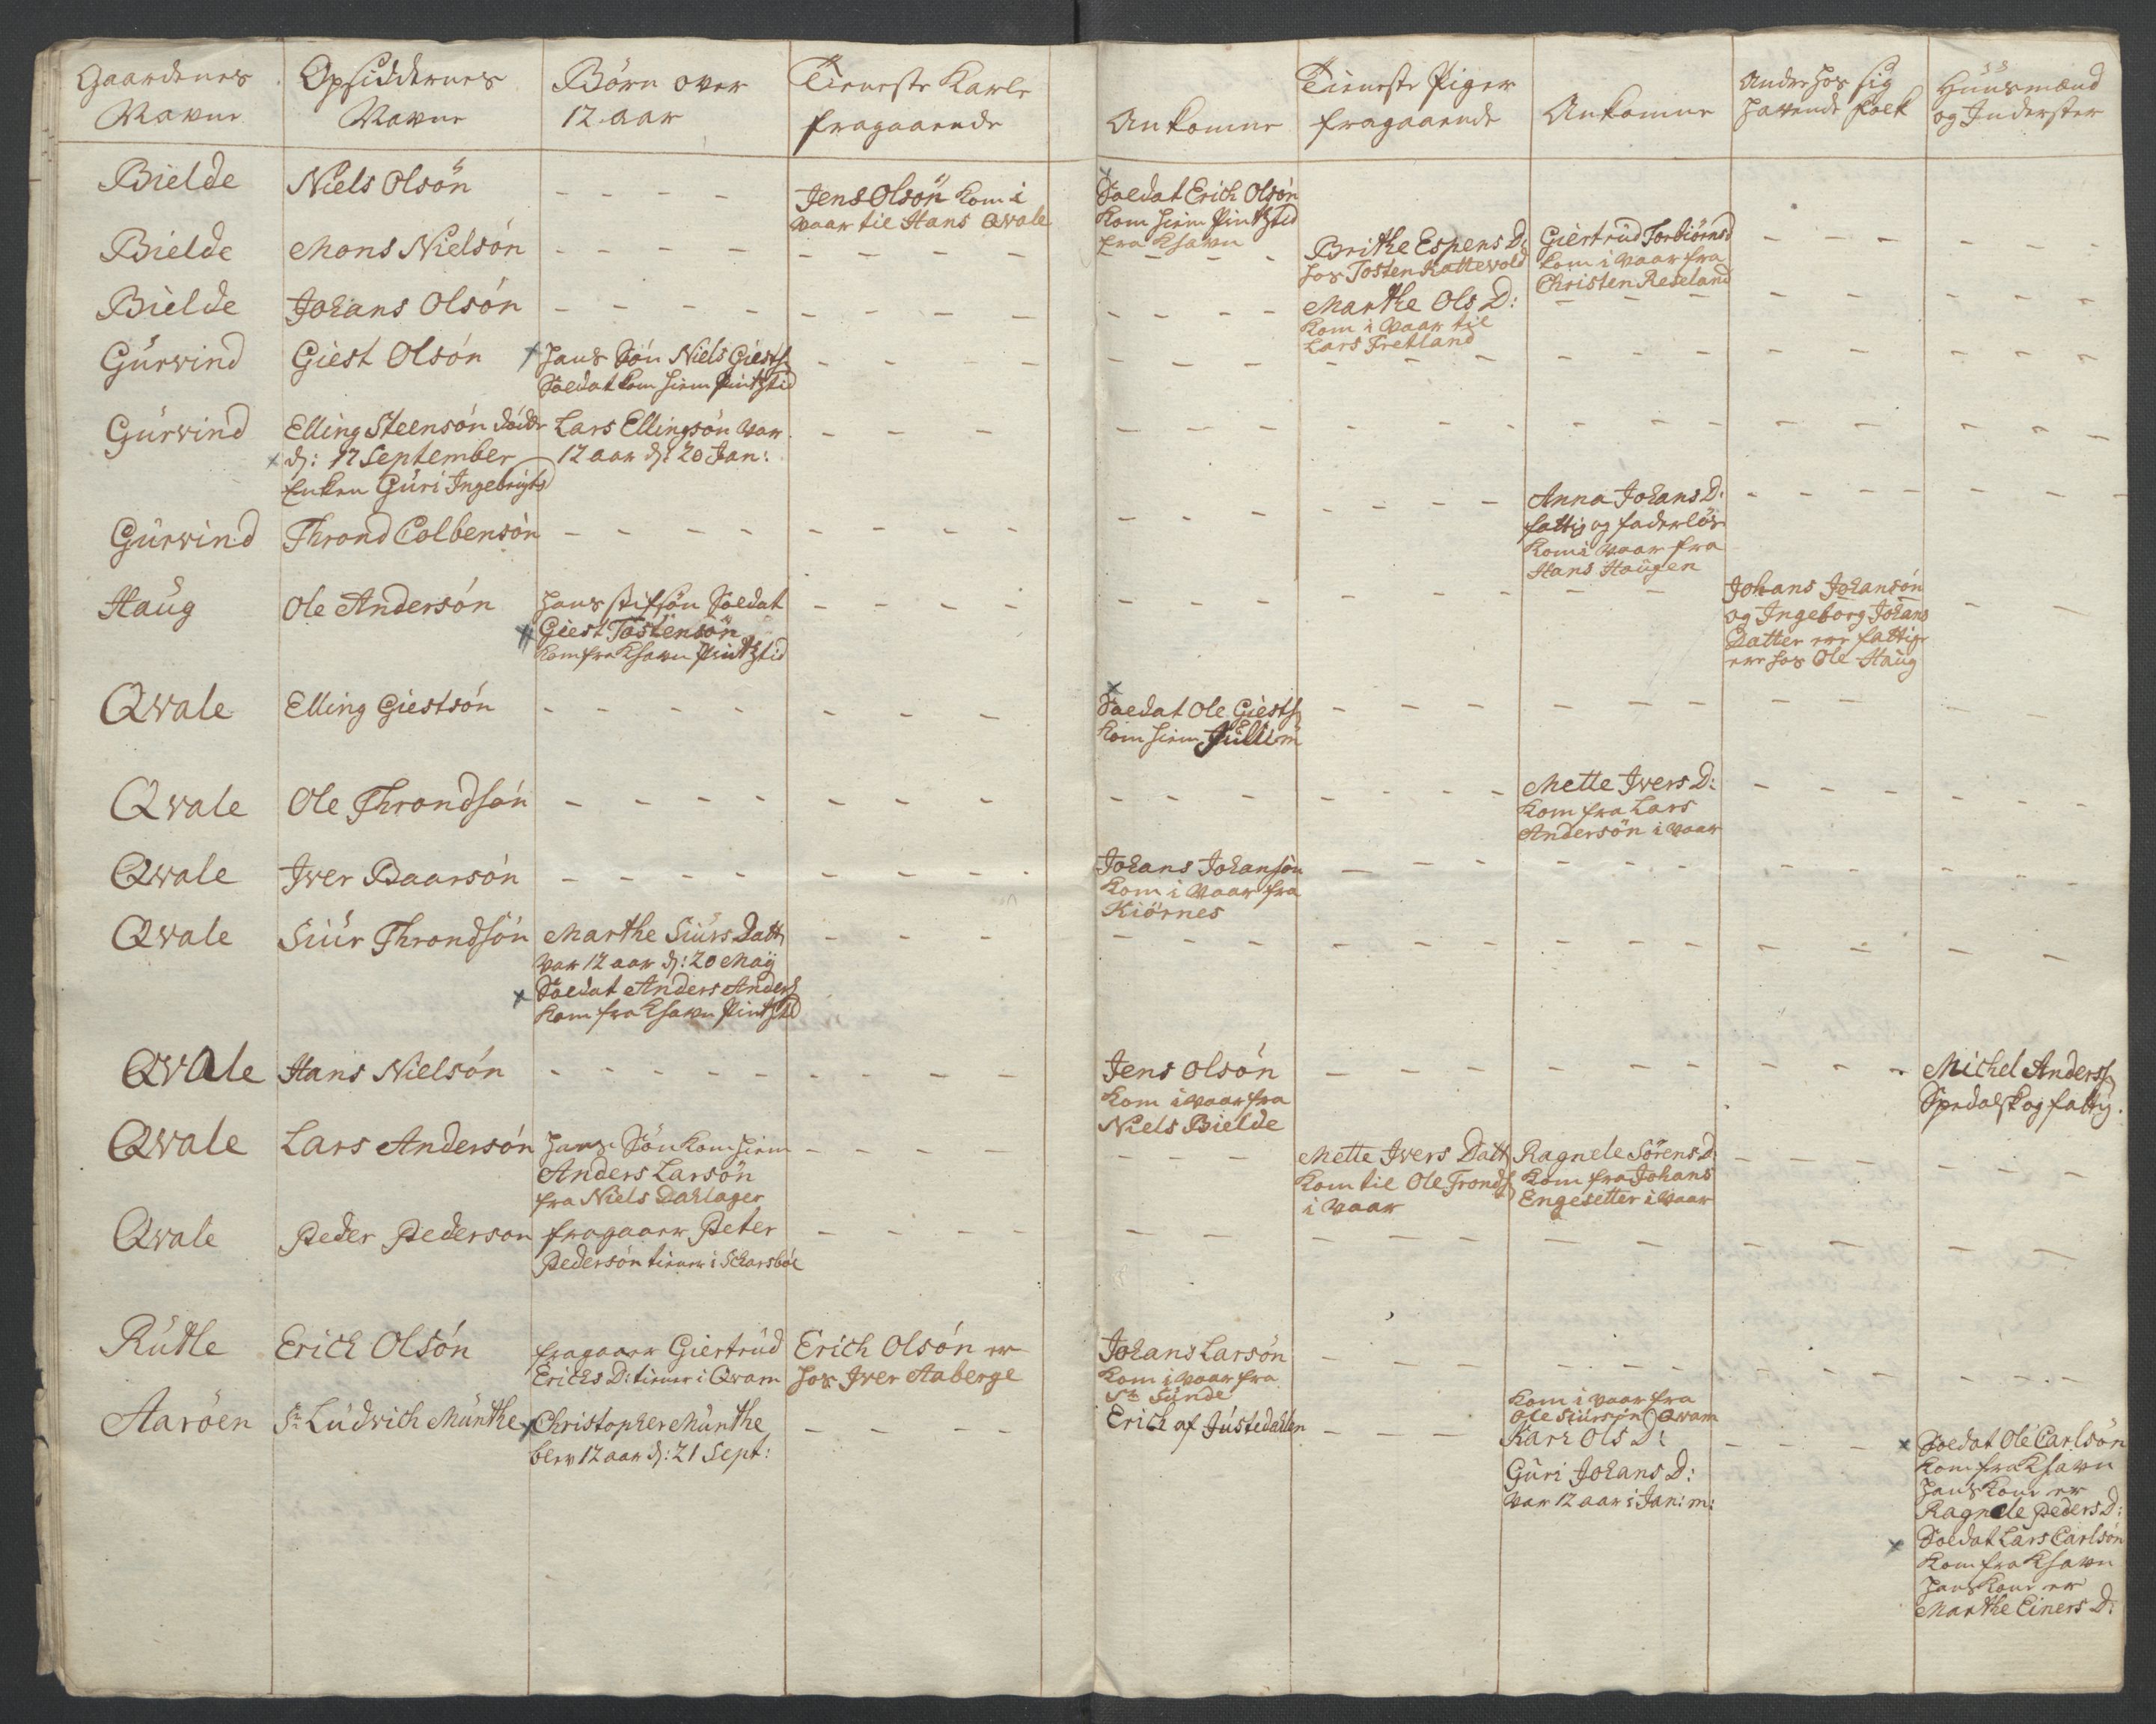 Gaardenes Navne
Opsiddernes Navne
Børn over 12 aar
Tieneste Karle fragaaende
Ankomne
Tieneste Piger fragaaende
Ankomne
Andre hos sig havende Folk
Huusmænd og Inderster
Bielde
Niels Olsön
Jens Olsön kom i
vaar til Hans Qvale
Soldat Erich Olsön
kom hiem Pintztid
fra Khavn
Bielde
Mons Nielsön
Brithe Espens D:
hos Tosten Kattevold
Giertrud Torbiörnsd
kom i vaar fra
Christen Reseland
Bielde
Johans Olsön
Marthe Ols D:
kom i vaar til
Lars Fretland
Gurvind
Giest Olsön
hans Sön Niels Giests
Soldat kom hiem Pintztid
Gurvind
Elling Steensön döde
d: 17 September
Enken Guri Ingebrigts
Lars Ellingsön var
12 aar d: 20 Jan:
Gurvind
Thrond Colbensön
Anna Johans D:
fattig og faderlös
kom i vaar fra
Hans Haugen
Haug
Ole Andersön
hans stifsön Soldat
Giest Tostensön
kom fra Khavn Pintztid
Johans Johansön
og Ingeborg Johans
Datter ere fattige
ere hos Ole Haug
Qvale
Elling Giestsön
Soldat Ole Giests
kom hiem Julii m
Qvale
Ole Throndsön
Mette Ivers D:
kom fra Lars
Andersön i vaar
Qvale
Iver Baarsön
Johans Johansön
kom i vaar fra
Kiörnes
Qvale
Siur Throndsön
Marthe Siurs Datt
var 12 aar d: 20 Maÿ
Soldat Anders Anders
kom fra Khavn Pintztid
Qvale
Hans Nielsön
Jens Olsön
kom i vaar fra
Niels Bielde
Michel Anderss
Spedalsk og fattig.
Qvale
Lars Andersön
hans Sön kom hiem
Anders Larsön
fra Niels Dahlager
Mette Ivers Datt
kom til Ole Tronds
i vaar
Ragnele Sörens D
kom fra Johans
Engesetter i vaar
Qvale
Peder Pederson
fragaaer Peter
Pedersön tiener i Scharsböe
Rutle
Erich Olsön
fragaaer Giertrud
Erichs D: tiener i Qvam
Erich Olsön er
hos Iver Aaberge
Johans Larsön
kom i vaar fra
Sr Sunde
Aaröen
Sr Ludwich Munthe
Christopher Munthe
blev 12 aar d: 21 Sept:
Erich af Justedahlen
kom i vaar fra
Ole Siursön Qvam
Kari Ols D:
Guri Johans D:
var 12 aar i Jan: m:
Soldat Ole Carlsön
kom fra Khavn
hans kone er
Ragnele Peders D:
Soldat Lars Carlsön
kom fra Khavn
hans kone er
Marthe Einers D: